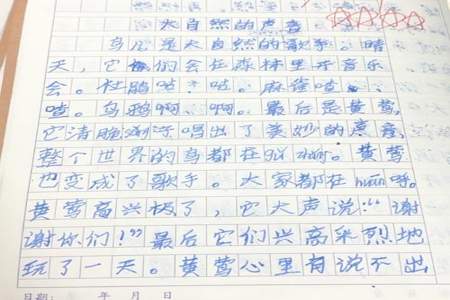 大自然的声音
鸟儿是大自然的歌手。晴
天,它们会在森林里开音乐
会。杜鹃咕、咕。麻雀喳、
喳。乌鸦啊、啊。最后是黄莺,
它清脆 唱出了美妙的声音,
整个世界的鸟都在 。黄莺
也变成了歌手。大家都在huān呼。
黄莺高兴极了,它大声说:“谢
谢你们!”最后它们兴高采烈地
玩了一天。黄莺心里有说不出
日期: 年 月 日